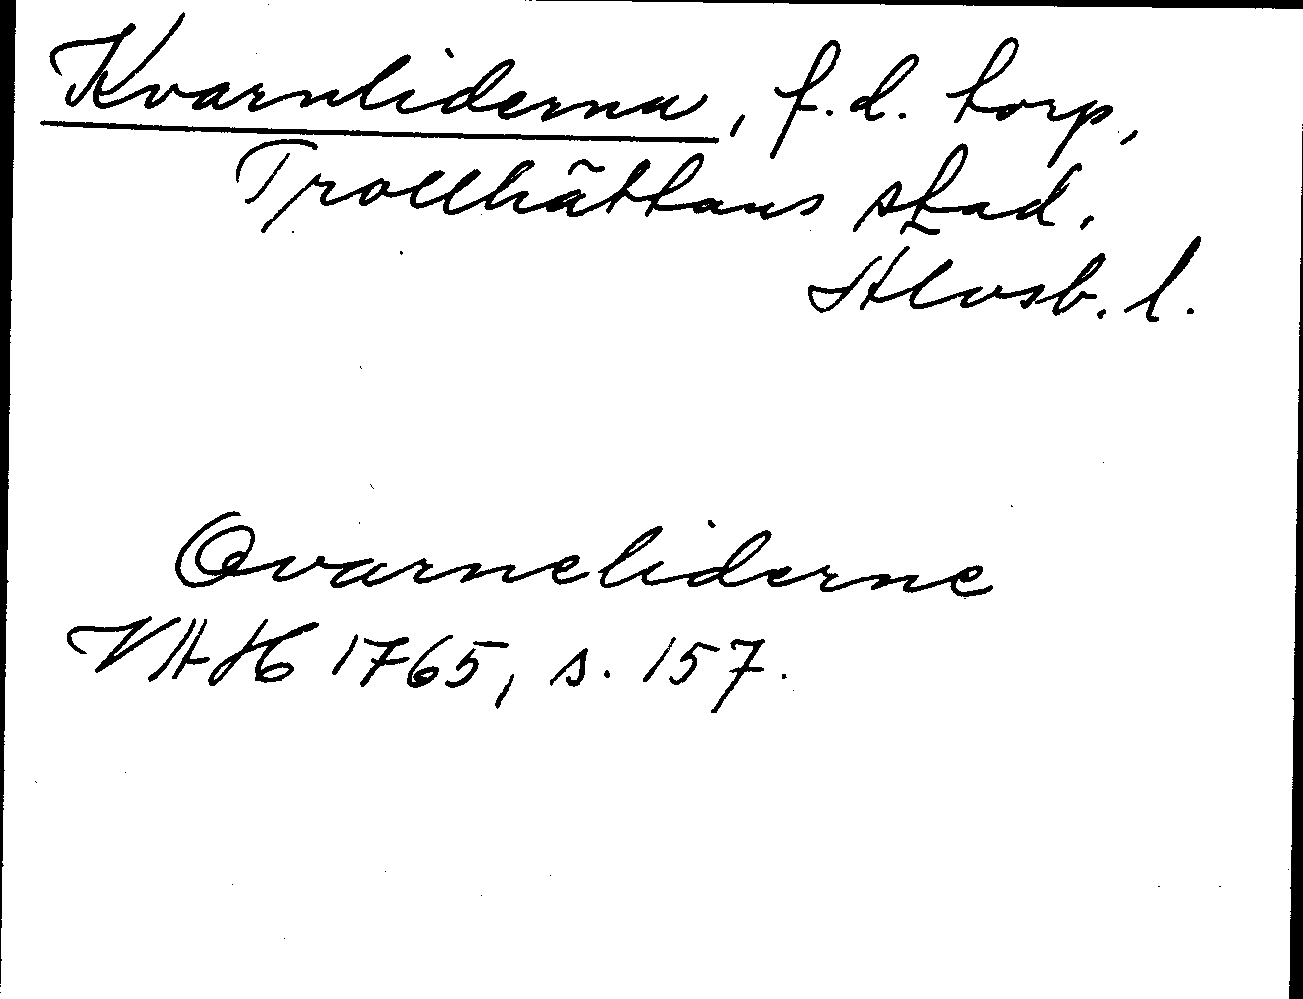 Kvarnliderna, f.d. torp,
Trollhättans stad.
Älvsb. l.
Qvarneliderne
VAH 1765, s. 157.